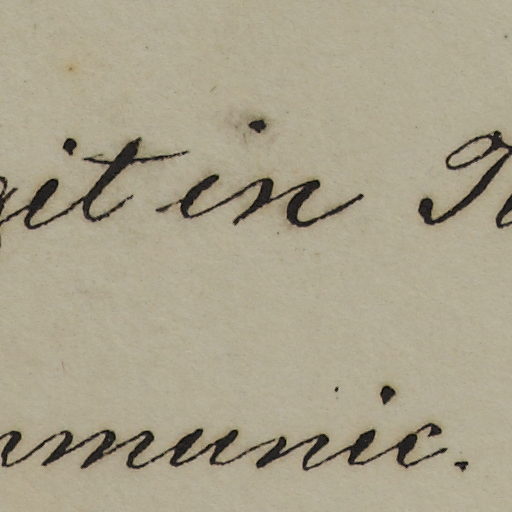 git in T
mmunic.